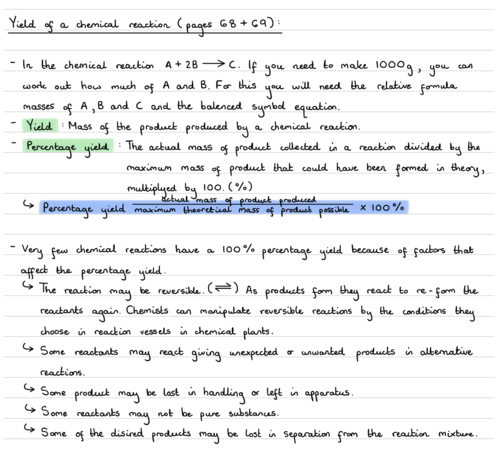 Yield of a chemical reaction (pages 68 + 69):
- In the chemical reaction A + 2B ⟶ C. If you need to make 1000g, you can
work out how much of A and B. For this you will need the relative formula
masses of A, B and C and the balenced symbol equation.
- Yield : Mass of the product produced by a chemical reaction.
- Percentage yield : The actual mass of product collected in a reaction divided by the
maximum mass of product that could have been formed in theory,
multiplyed by 100. (%)
actual mass of product produced
↳ Percentage yield maximum theoretical mass of product possible × 100%
- Very few chemical reactions have a 100% percentage yield because of factors that
affect the percentage yield.
↳ The reaction may be reversible. (⇌) As products form they react to re-form the
reactants again. Chemists can manipulate reversible reactions by the conditions they
choose in reaction vessels in chemical plants.
↳ Some reactants may react giving unexpected or unwanted products in alternative
reactions.
↳ Some product may be lost in handling or left in apparatus.
↳ Some reactants may not be pure substances.
↳ Some of the disired products may be lost in separation from the reaction mixture.